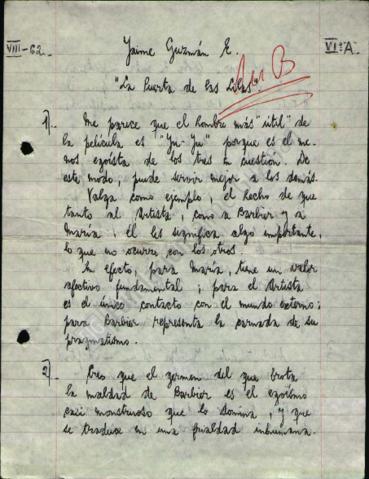 VIII-62.
Jaime Guzmán E.
VIºA
"La Puerta de las Lilas".
1)
Me parece que el hombre más "útil" de
la película es "Yu-Yu" porque es el me-
nos egoísta de los tres en cuestión. De
este modo, puede servir mejor a los demás.
Valga como ejemplo, el hecho de que
tanto al Artista, como a Barbier y a
María, él les significa algo importante,
lo que no ocurre con los otros.
En efecto, para María, tiene un valor
afectivo fundamental; para el Artista
es el único contacto con el mundo externo;
para Barbier representa la carnada de su
pragmatismo.
2)
Creo que el germen del que brota
la maldad de Barbier es el egoísmo
casi monstruoso que lo domina, y que
se traduce en una frialdad inhumana.